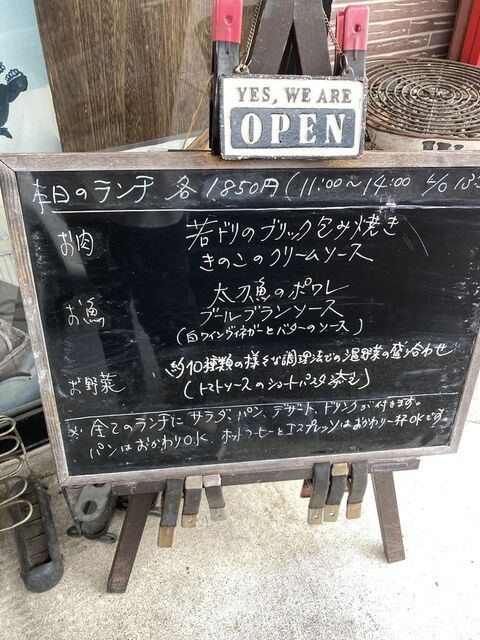 YES, WE ARE
OPEN
本日のランチ 各 1.850円 (11:00～14:00 L/O 13:
お肉 若ドリのブリック包み焼き
きのこのクリームソース
お魚 太刀魚のポワレ
ブールブランソース
(白ワインヴィネガーとバターのソース)
お野菜 約10種類の様々な調理法での温野菜の盛り合わせ
(トマトソースのショートパスタ添え)
※ 全てのランチに サラダ、パン、デザート、ドリンクが付きます。
パンはおかわりO.K. ホットコーヒーとエスプレッソはおかわり一杯OKです。